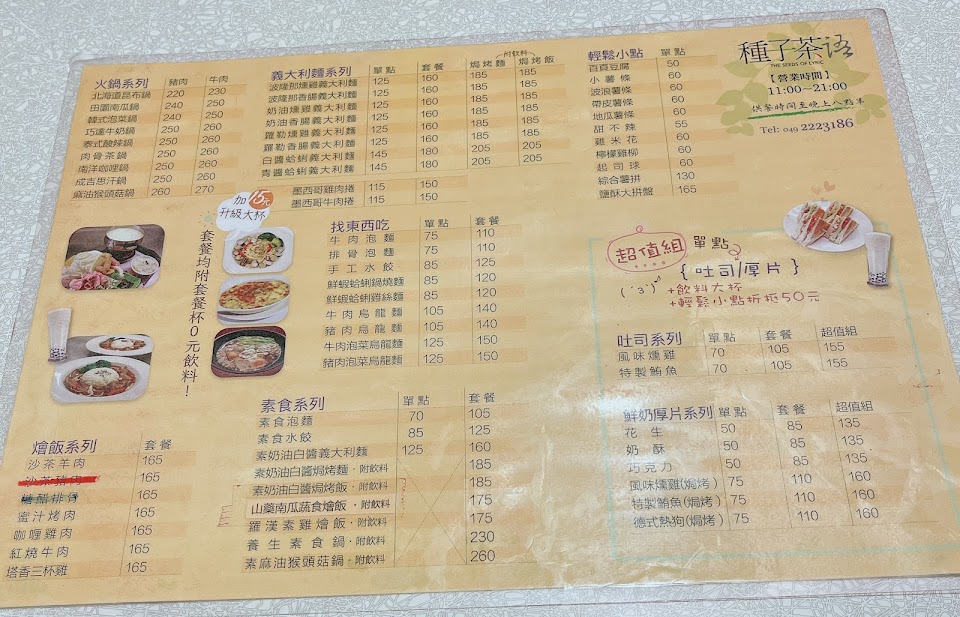 種子茶语
THE SEEDS OF LYRIC
【營業時間】
11:00~21:00
供餐時間至晚上八點半
Tel: 049 2223186
火鍋系列 豬肉 牛肉
北海道昆布鍋 220 230
田園南瓜鍋 240 250
韓式泡菜鍋 240 250
巧達牛奶鍋 250 260
泰式酸辣鍋 250 260
肉骨茶鍋 250 260
南洋咖哩鍋 250 260
成吉思汗鍋 250 260
麻油猴頭菇鍋 260 270
加15元
升級大杯
套餐均附套餐杯0元飲料！
燴飯系列 套餐
沙茶羊肉 165
沙茶豬肉 165
糖醋排骨 165
蜜汁烤肉 165
咖哩雞肉 165
紅燒牛肉 165
塔香三杯雞 165
附飲料
義大利麵系列 單點 套餐 焗烤麵 焗烤飯
波隆那燻雞義大利麵 125 160 185 185
波隆那香腸義大利麵 125 160 185 185
奶油燻雞義大利麵 125 160 185 185
奶油香腸義大利麵 125 160 185 185
羅勒燻雞義大利麵 125 160 185 185
羅勒香腸義大利麵 125 160 185 185
白醬蛤蜊義大利麵 145 180 205 205
青醬蛤蜊義大利麵 145 180 205 205
墨西哥雞肉捲 115 150
墨西哥牛肉捲 115 150
找東西吃 單點 套餐
牛肉泡麵 75 110
排骨泡麵 75 110
手工水餃 85 125
鮮蝦蛤蜊鍋燒麵 85 120
鮮蝦蛤蜊雞絲麵 85 120
牛肉烏龍麵 105 140
豬肉烏龍麵 105 140
牛肉泡菜烏龍麵 125 150
豬肉泡菜烏龍麵 125 150
素食系列 單點 套餐
素食泡麵 70 105
素食水餃 85 125
素奶油白醬義大利麵 125 160
素奶油白醬焗烤麵·附飲料 185
素奶油白醬焗烤飯·附飲料 185
山藥南瓜蔬食燴飯·附飲料 175
羅漢素雞燴飯·附飲料 175
養生素食鍋·附飲料 230
素麻油猴頭菇鍋·附飲料 260
輕鬆小點 單點
百頁豆腐 50
小薯條 60
波浪薯條 60
帶皮薯條 60
地瓜薯條 60
甜不辣 55
雞米花 60
檸檬雞柳 60
起司球 60
綜合薯拼 130
鹽酥大拼盤 165
超值組 單點
{吐司/厚片}
(´3`) +飲料大杯
+輕鬆小點折抵50元
吐司系列 單點 套餐 超值組
風味燻雞 70 105 155
特製鮪魚 70 105 155
鮮奶厚片系列 單點 套餐 超值組
花生 50 85 135
奶酥 50 85 135
巧克力 50 85 135
風味燻雞(焗烤) 75 110 160
特製鮪魚(焗烤) 75 110 160
德式熱狗(焗烤) 75 110 160